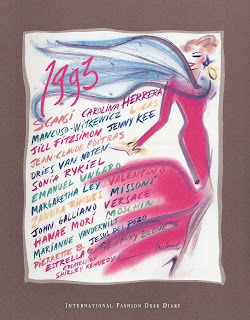 1993
SCAASI CAROLINA HERRERA
MANCUSO-WITKEWICZ LUCAS
JILL FITZSIMON JENNY KEE
JEAN-CLAUDE POITRAS
DRIES VAN NOTEN
SONIA RYKIEL
EMANUEL UNGARO VALENTINO
MARGARETHA LEY MISSONI
ZANDRA RHODES VERSACE
JOHN GALLIANO MOSCHINO
HANAE MORI
MARIANNE VANDERWILT JESUS DEL POZO
PIERRETTE B. GEOFFREY BEENE
ESTRELLA G.
CREATED BY
SHIRLEY KENNEDY
INTERNATIONAL FASHION DESK DIARY